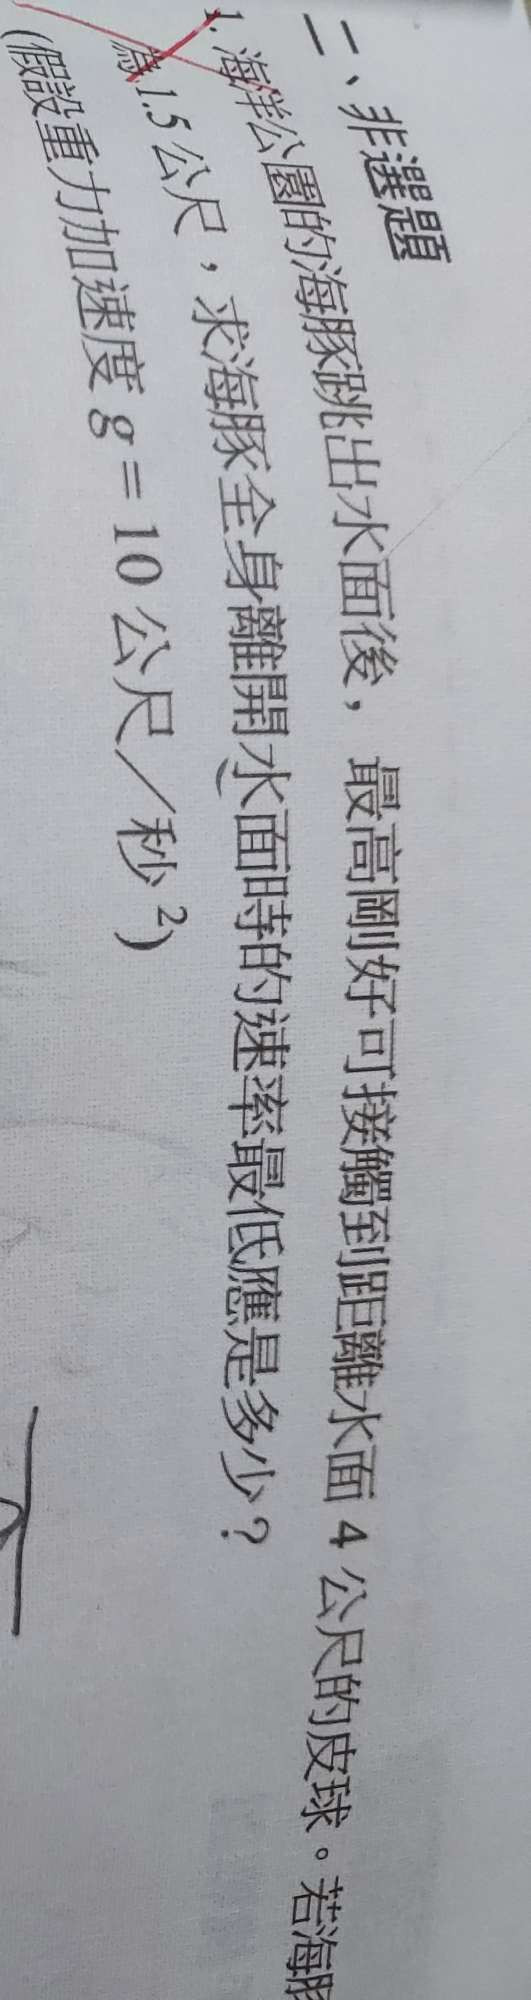 二、非選題
1. 海洋公園的海豚跳出水面後，最高剛好可接觸到距離水面 4 公尺的皮球。若海豚
為 1.5 公尺，求海豚全身離開水面時的速率最低應是多少？
(假設重力加速度 g = 10 公尺／秒²)